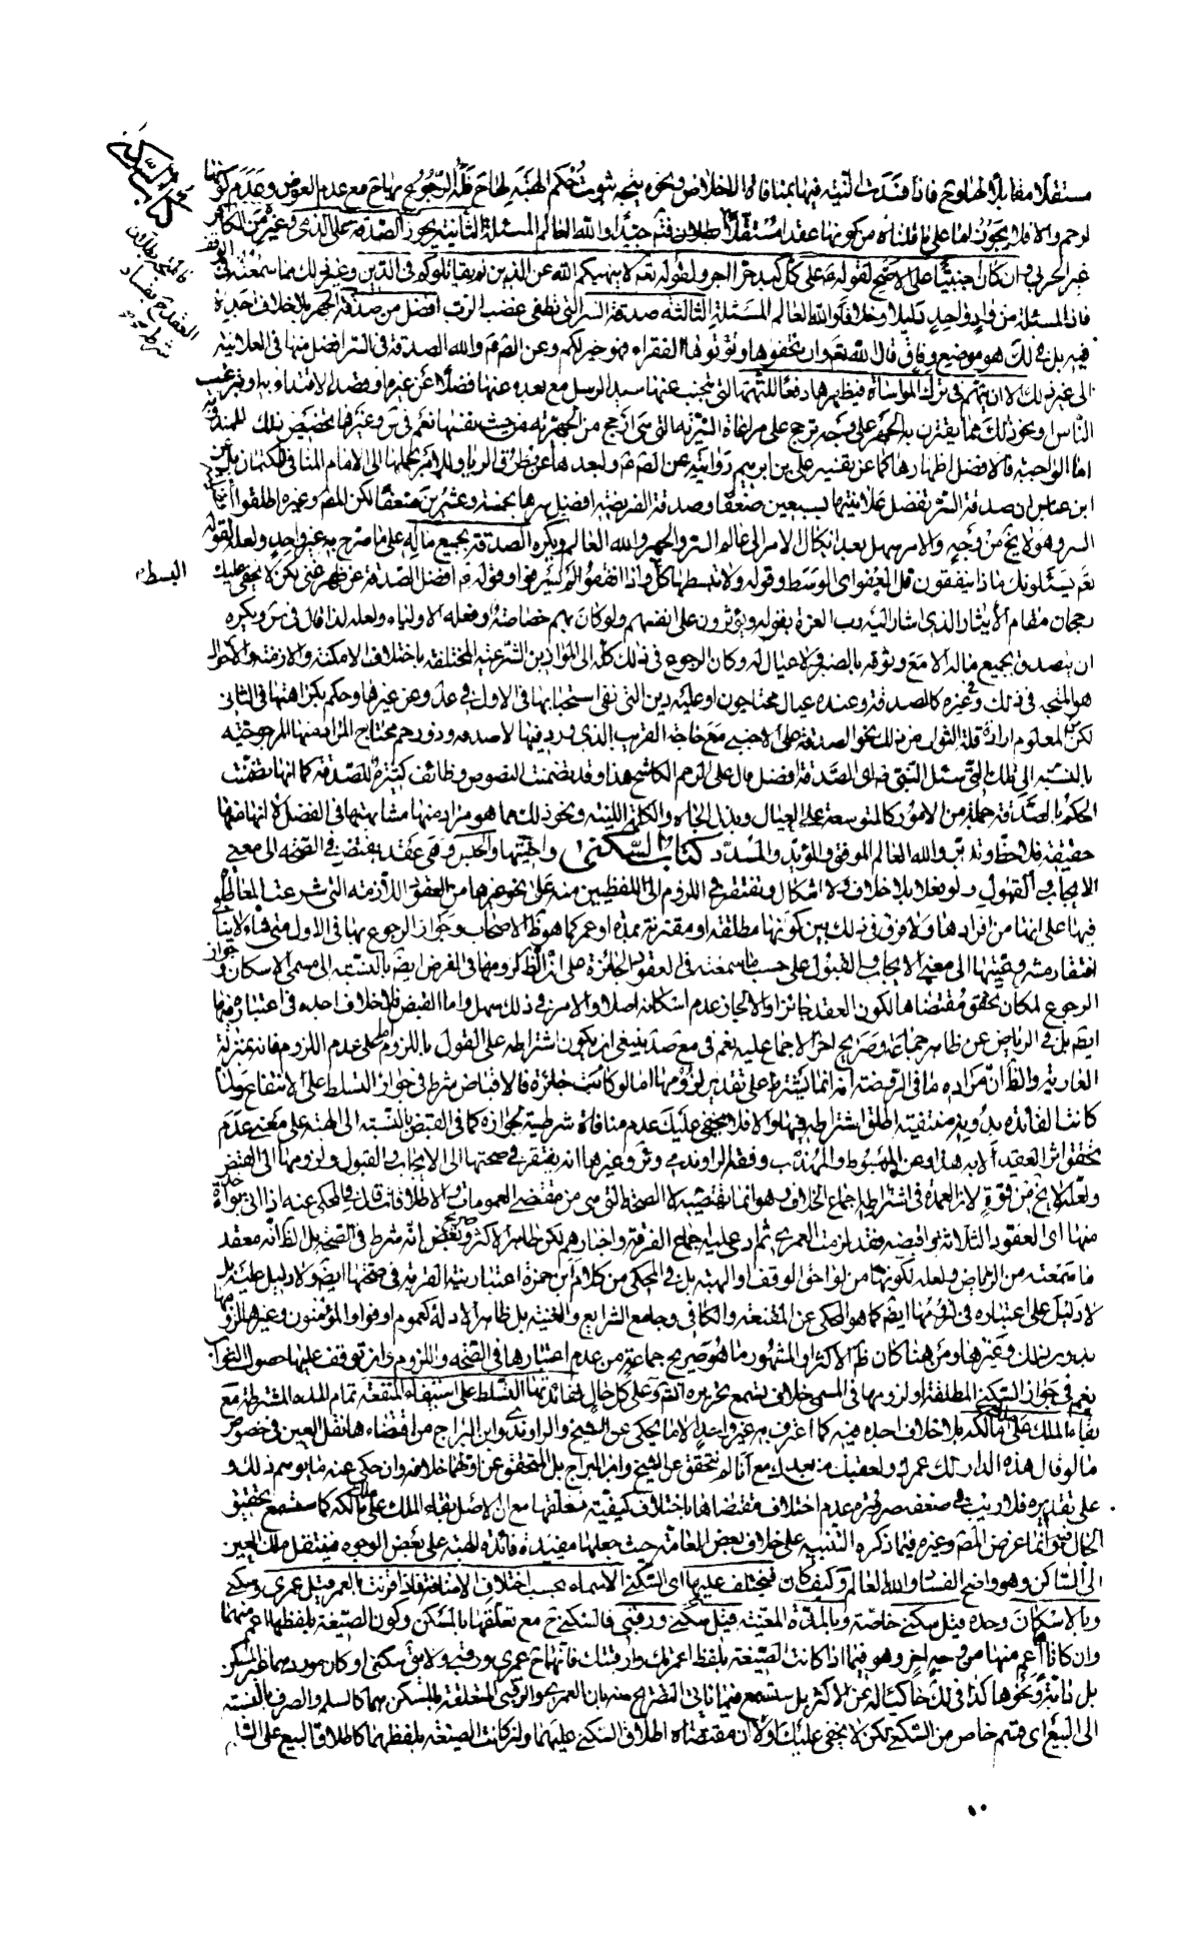 كتاب السكنى
مستقلا مقابلا لها وح فاذا فسدت النية فيها بمنافاة الاخلاص ونحوه يتجه ثبوت حكم الهبة لها ح فله الرجوع بها ح مع عدم العوض وعدم كونها
لرحم والا فلا يجوز اما على ما قلناه من كونها عقدا مستقلا فتم جيدا والله العالم المسئلة الثانية يجوز الصدقة على الذمى وغيره من الكافر
غير الحربى وان كان اجنبيا على الاصح لقوله على كل كبد حرا اجر ولقوله تعه لا ينهيكم الله عن الذين لم يقاتلوكم فى الدين وغير ذلك مما سمعته فى الوقف
فان المسئلة من واد واحد دليلا وخلافا والله العالم المسئلة الثالثة صدقة السر التى تطفى غضب الرب افضل من صدقة الجهر بلا خلاف اجده
فيه بل فى ذلك هو موضع وفاق قال الله تعه وان تخفوها وتؤتوها الفقراء فهو خير لكم وعن الصم والله الصدقة فى السر افضل منها فى العلانية
الى غير ذلك الا ان يتهم فى ترك المواساة فيظهرها دفعا للتهمة التى تجنب عنها سيد الرسل مع بعده عنها فضلا عن غيره او قصد الاقتداء به او ترغيب
الناس او نحو ذلك مما يقترن به الجهر على وجه ترجح على مراعاة السرية التى هى ارجح من الجهرية من حيث نفسها نعم فى س وغيرها تخصيص ذلك للمندوبة
اما الواجبة فالافضل اظهارها كما عن تفسير على بن ابرهيم روايته عن الصم
ابن عباس ان صدقة السر تفضل علانيتها بسبعين ضعفا وصدقة الفريضة افضل سرها بخمسة وعشرين ضعفا لكن المص وغيره اطلقوا
السر وهو لا يخ من وجه والامر سهل بعد ايكال الامر الى عالم السر والجهر والله العالم ويكره الصدقة بجميع ماله على ما صرح به غير واحد ولعله لقوله
تعه يسئلونك ماذا ينفقون قل العفو اى الوسط وقوله ولا تبسطها كل واذا انفقوا لم يسرفوا وقوله افضل الصدقة عن ظهر غنى لكن لا يخفى عليك
البسط
رجحان مقام الايثار الذى اشار اليه رب العزة بقوله ويؤثرون على انفسهم ولو كان بهم خصاصة وفعله الاولياء ولعله لذا قال فى س ويكره
ان يتصدق بجميع ماله الا مع وثوقه بالصبر ولا عيال له وكان الرجوع فى ذلك كله الى الموازين الشرعية المختلفة باختلاف الامكنة والازمنة والاحوال
هو المتجه فى ذلك وغيره كالصدقة وعنده عيال محتاجون او عليه دين التى نفى استحبابها فى الاول وعن غيرها وحكم بكراهتها فى الثانى
لكن المعلوم ارادة قلة الثواب من ذلك نحو الصدقة على الاجنبى مع حاجة القريب الذى ورد فيها لا صدقة وذو رحم محتاج المراد منها المرجوحية
بالنسبة الى تلك التى سئل النبى اى الصدقة افضل قال على الرحم الكاشح هذا وقد تضمنت النصوص وظائف كثيرة للصدقة كما انها تضمنت
الحكم بالصدقة جملة من الامور كالتوسعة على العيال وبذل الجاه والكلمة اللينة ونحو ذلك مما هو مراد منها مشابهتها فى الفضل لا انها منها
حقيقة فلاحظ وتدبر والله العالم الموفق والمؤيد والمسدد كتاب السكنى وتوابعها والحبس وهى عقد يفتقر فى الصحة الى معنى
الايجاب والقبول ولو فعلا بلا خلاف ولا اشكال وتفتقر فى اللزوم الى اللفظيين منه على نحو غيرها من العقود اللازمة التى شرعت المعاطاة
فيها على انها من افرادها ولا فرق فى ذلك بين كونها مطلقة او مقترنة بمدة او عمر كما هو ظ الاصحاب وجواز الرجوع بها فى الاول متى شاء لا ينافى
افتقار مشروعيتها الى معنى الايجاب والقبول على حسب ما سمعته فى العقود الجائزة
الرجوع لمكان تحقق مقتضاها لكون العقد جائزا والا لجاز عدم اسكانه اصلا والامر فى ذلك سهل واما القبض فلا خلاف اجده فى اعتباره منها
ايضا بل فى الرياض عن ظاهر جماعة وصريح اخر الاجماع عليه نعم فى مع صد ينبغى ان يكون اشتراطه على القول باللزوم اما على عدم اللزوم فانه بمنزلة
العارية والظ ان مراده ما فى الروضة انه انما يشترط على تقدير لزومها اما لو كانت جائزة فالاقباض شرط فى جواز التسلط على الانتفاع ولما
كانت الفائدة بدونه منتفية اطلق اشتراطه فيها والا فلا يخفى عليك عدم منافاة شرطية لجوازه كما فى القبض بالنسبة الى الهبة على معنى عدم
تحقق اثر العقد الا به هذا وعن المبسوط والمهذب وفقه الراوندى وثرو غيرها انه يفتقر فى صحتها الى الايجاب والقبول ولزومها الى القبض
ولعله لا يخ من قوة لان العمدة فى اشتراطه اجماع الخلاف وهو انما يقتضيه لا الصحة التى هى من مقتضى العمومات والاطلاقات
منها اى العقود الثلاثة واقبضه فقد لزمت العمرى ثم دعى عليه اجماع الفرقة واخبارهم لكن ظاهر الاكثر وصريح بعض انه شرط فى الصحة بل الظ انه معقد
ما سمعته من الرياض ولعله لكونها من لواحق الوقف او الهبة بل فى المحكى من كلام ابن حمزة اعتبار نية القربة فى صحتها ايضا ولا دليل عليه بل
لا دليل على اعتباره فى لزومها ايضا كما هو المحكى عن المقنعة والكافى وجامع الشرايع والغنية بل ظاهر الادلة كعموم اوفوا والمؤمنون وغيرها لزومها
بدون ذلك وغيرها ومن هنا كان ظ الاكثر او المشهور ما هو صريح جماعة من عدم اعتبارها فى الصحة واللزوم وان توقف عليها حصول الثواب
نعم فى جواز السكنى المطلقة او لزومها فى المسمى خلاف تسمع تحريره انشم وعلى كل حال ففائدتها التسلط على استيفاء المنفعة تمام المدة المشترطة مع
بقاء الملك على مالكه بلا خلاف اجده فيه كما اعترف به غير واحد الا ما يحكى عن الشيخ والراوندى وابن البراج من اقتضاءها نقل العين فى خصوص
ما لو قال هذه الدار لك عمرك ولعقبك من بعدك مع انا لم نتحقق عن الشيخ وابن البراج بل المتحقق عن اولهما خلافه وان حكى عنه ما يوهم ذلك و
على تقديره فلا ريب فى ضعفه ضرورة عدم اختلاف مقتضاها باختلاف كيفية متعلقها مع ان الاصل بقاء الملك على مالكه كما ستسمع تحقيق
الحال فيه وانما غرض المص وغيره فيما ذكره التنبيه على خلاف بعض العامة حيث جعلها مفيدة فائدة الهبة على بعض الوجوه فينتقل ملك العين
الى الساكن وهو واضح الفساد والله العالم وكيف كان فيختلف عليها اى السكنى الاسماء بحسب اختلاف الاضافة فاذا اقترنت بالعمر قيل عمرى وسكنى
وبالاسكان وحده قيل سكنى خاصة وبالمدة المعينة قيل سكنى ورقبى فالسكنى ح مع تعلقها بالمسكن وكون الصيغة بلفظها اعم منهما
وان كانا اعم منها من وجه اخر وهو فيما اذا كانت الصيغة بلفظ اعمرتك وارقبتك فانها ح عمرى ورقبى ولا سكنى او كان موردهما غير المسكن
بل دابة ونحوها كذا فى لك حاكيا له عن الاكثر بل ستسمع فيما ياتى التصريح منه بان العمرى والرقبى المتعلقة بالمسكن هما كالسلم والصرف بالنسبة
الى البيع اى قسم خاص من السكنى لكن لا يخفى عليك اولا ان مقتضاه اطلاق السكنى عليهما وان كانت الصيغة بلفظهما كاطلاق البيع على السلم
١٠